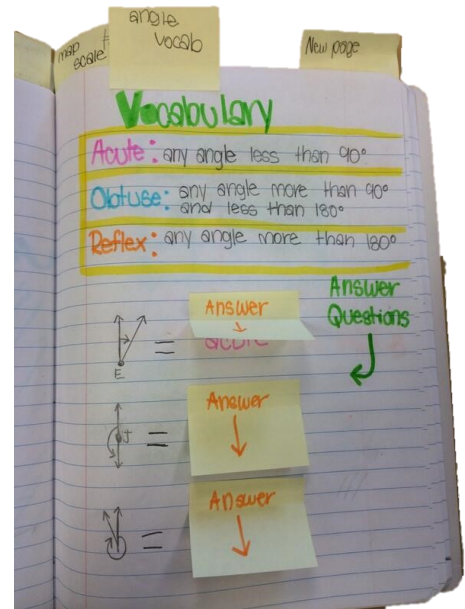 angle
vocab
map
scale
New page
Vocabulary
Acute: any angle less than 90°
Obtuse: any angle more than 90°
and less than 180°
Reflex: any angle more than 180°
Answer
Questions
Answer
acute
E
=
Answer
=
Answer
=